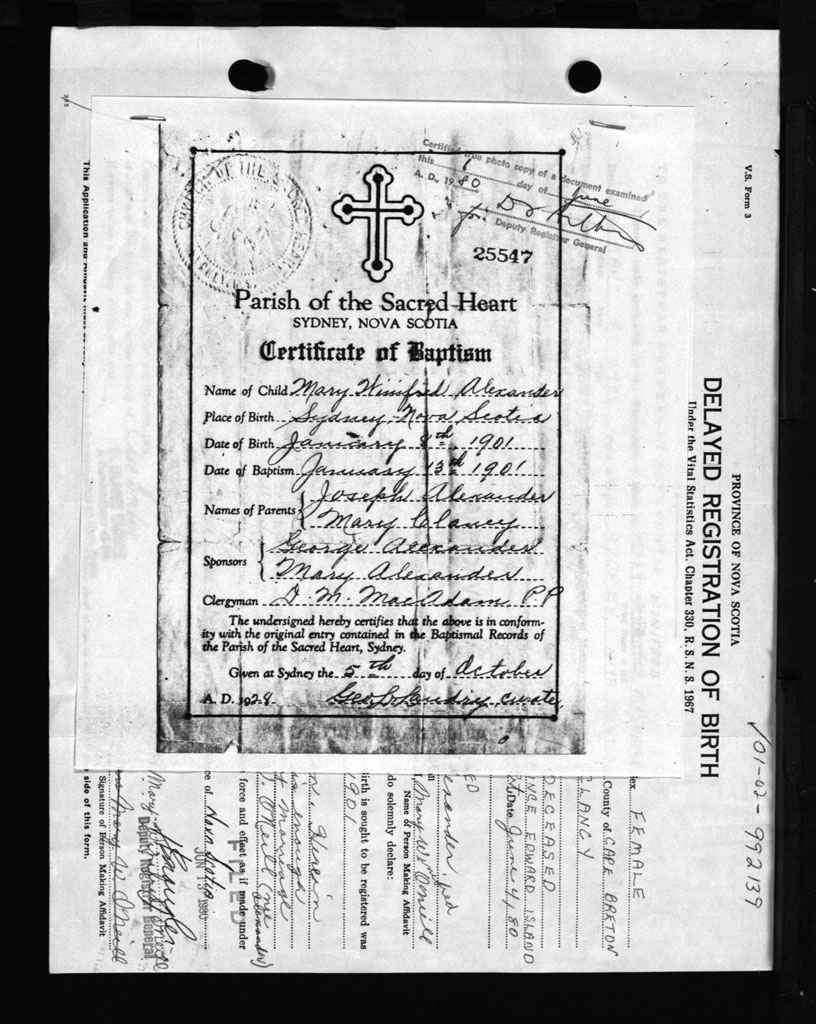 Certified true photo copy of a document examined
this 1 day of June
A. D., 1980
for
Deputy Registrar General
25547
Parish of the Sacred Heart
SYDNEY, NOVA SCOTIA
Certificate of Baptism
Name of Child Mary Winifred Alexander
Place of Birth Sydney, Nova Scotia
Date of Birth January 8th, 1901
Date of Baptism January 13th 1901
Names of Parents Joseph Alexander
Mary Clancy
Sponsors George Alexander
Mary Alexander
Clergyman D. M. MacAdam P.P
The undersigned hereby certifies that the above is in conform-
ity with the original entry contained in the Baptismal Records of
the Parish of the Sacred Heart, Sydney.
Given at Sydney the 5th day of October
A. D. 1928 Geo Landry, curate
V.S. Form 3
PROVINCE OF NOVA SCOTIA
DELAYED REGISTRATION OF BIRTH
Under the Vital Statistics Act. Chapter 330, R.S.N.S. 1967
01-02-992139
ex FEMALE
County of CAPE BRETON
CLANCY
DECEASED
NCE EDWARD ISLAND
Date June 4/80
ED
Mary W. O'Neill
Name of Person Making Affidavit
do solemnly declare:
irth is sought to be registered was
1901
marriage
O'Neill (nee
Alexander)
force and effect as if made under
FILED
ce of Nova Scotia
JUN 1980
Deputy Registrar General
Mary W O'Neill
Signature of Person Making Affidavit
side of this form.
This Application and Affidavit must be